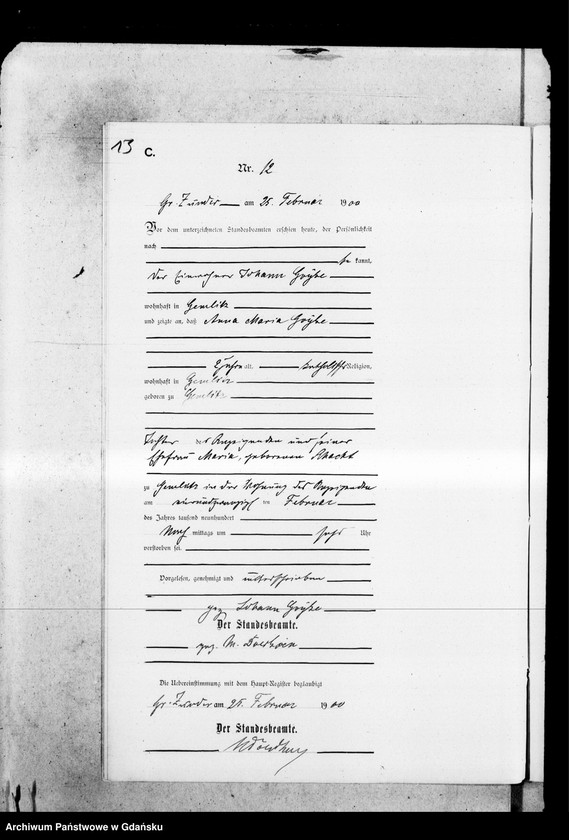 13 C.
Nr. 12
Gr. Zünder am 25. Februar 1900
Vor dem unterzeichneten Standesbeamten erschien heute, der Persönlichkeit
nach
be kannt,
der Einwohner Johann
wohnhaft in Gemlitz
und zeigte an, daß Anna Maria
alt, katholischer Religion,
wohnhaft in Gemlitz
geboren zu Gemlitz
Tochter des Anzeigenden und seiner
Ehefrau Maria, geborenen
zu Gemlitz in der Wohnung des Anzeigenden
am ten Februar
des Jahres tausend neunhundert
Nach mittags um Uhr
verstorben sei.
Vorgelesen, genehmigt und unterschrieben
gez. Johann
Der Standesbeamte.
gez. M.
Die Uebereinstimmung mit dem Haupt-Register beglaubigt
Gr. Zünder am 25. Februar 1900
Der Standesbeamte.
Archiwum Państwowe w Gdańsku